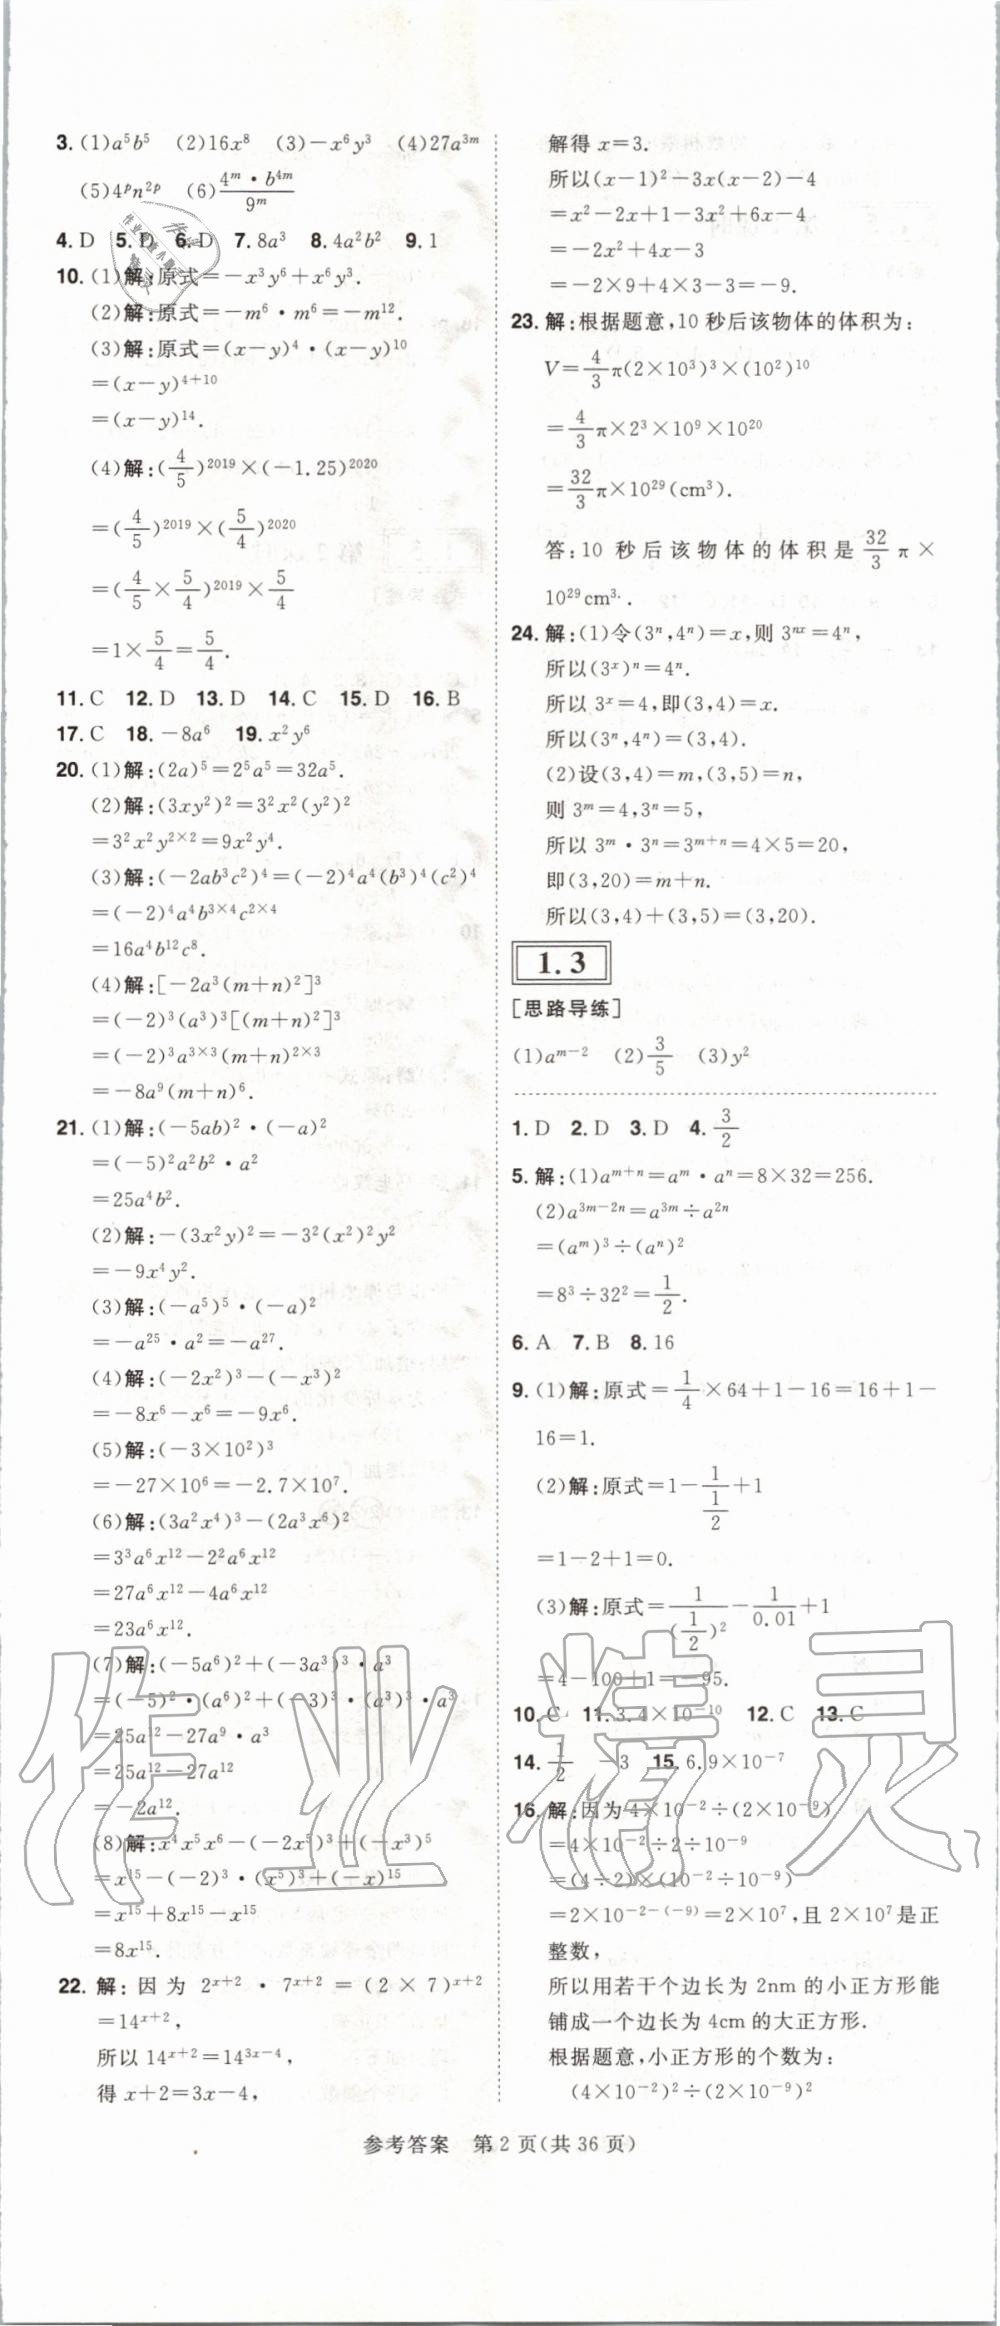 3. (1)a⁵b⁵ (2)16x⁸ (3)−x⁶y³ (4)27a³ᵐ
(5)4ᵖn²ᵖ (6)4ᵐ·b⁴ᵐ/9ᵐ
4. D 5. D 6. D 7. 8a³ 8. 4a²b² 9. 1
10. (1)解:原式=−x³y⁶+x⁶y³.
(2)解:原式=−m⁶·m⁶=−m¹².
(3)解:原式=(x−y)⁴·(x−y)¹⁰
=(x−y)⁴⁺¹⁰
=(x−y)¹⁴.
(4)解:(4/5)²⁰¹⁹×(−1.25)²⁰²⁰
=(4/5)²⁰¹⁹×(5/4)²⁰²⁰
=(4/5×5/4)²⁰¹⁹×5/4
=1×5/4=5/4.
11. C 12. D 13. D 14. C 15. D 16. B
17. C 18. −8a⁶ 19. x²y⁶
20. (1)解:(2a)⁵=2⁵a⁵=32a⁵.
(2)解:(3xy²)²=3²x²(y²)²
=3²x²y²ˣ²=9x²y⁴.
(3)解:(−2ab³c²)⁴=(−2)⁴a⁴(b³)⁴(c²)⁴
=(−2)⁴a⁴b^(3×4)c^(2×4)
=16a⁴b¹²c⁸.
(4)解:[−2a³(m+n)²]³
=(−2)³(a³)³[(m+n)²]³
=(−2)³a^(3×3)(m+n)^(2×3)
=−8a⁹(m+n)⁶.
21. (1)解:(−5ab)²·(−a)²
=(−5)²a²b²·a²
=25a⁴b².
(2)解:−(3x²y)²=−3²(x²)²y²
=−9x⁴y².
(3)解:(−a⁵)⁵·(−a)²
=−a²⁵·a²=−a²⁷.
(4)解:(−2x²)³−(−x³)²
=−8x⁶−x⁶=−9x⁶.
(5)解:(−3×10²)³
=−27×10⁶=−2.7×10⁷.
(6)解:(3a²x⁴)³−(2a³x⁶)²
=3³a⁶x¹²−2²a⁶x¹²
=27a⁶x¹²−4a⁶x¹²
=23a⁶x¹².
(7)解:(−5a⁶)²+(−3a³)³·a³
=(−5)²·(a⁶)²+(−3)³·(a³)³·a³
=25a¹²−27a⁹·a³
=25a¹²−27a¹²
=−2a¹².
(8)解:x⁴x⁵x⁶−(−2x⁵)³+(−x³)⁵
=x¹⁵−(−2)³·(x⁵)³+(−x)¹⁵
=x¹⁵+8x¹⁵−x¹⁵
=8x¹⁵.
22. 解:因为 2ˣ⁺²·7ˣ⁺²=(2×7)ˣ⁺²
=14ˣ⁺²,
所以 14ˣ⁺²=14³ˣ⁻⁴,
得 x+2=3x−4,
解得 x=3.
所以(x−1)²−3x(x−2)−4
=x²−2x+1−3x²+6x−4
=−2x²+4x−3
=−2×9+4×3−3=−9.
23. 解:根据题意,10 秒后该物体的体积为:
V=4/3π(2×10³)³×(10²)¹⁰
=4/3π×2³×10⁹×10²⁰
=32/3π×10²⁹(cm³).
答:10 秒后该物体的体积是 32/3 π×
10²⁹cm³.
24. 解:(1)令(3ⁿ,4ⁿ)=x,则 3ⁿˣ=4ⁿ,
所以(3ˣ)ⁿ=4ⁿ.
所以 3ˣ=4,即(3,4)=x.
所以(3ⁿ,4ⁿ)=(3,4).
(2)设(3,4)=m,(3,5)=n,
则 3ᵐ=4,3ⁿ=5,
所以 3ᵐ·3ⁿ=3ᵐ⁺ⁿ=4×5=20,
即(3,20)=m+n.
所以(3,4)+(3,5)=(3,20).
1.3
[思路导练]
(1)aᵐ⁻² (2)3/5 (3)y²
1. D 2. D 3. D 4. 3/2
5. 解:(1)aᵐ⁺ⁿ=aᵐ·aⁿ=8×32=256.
(2)a³ᵐ⁻²ⁿ=a³ᵐ÷a²ⁿ
=(aᵐ)³÷(aⁿ)²
=8³÷32²=1/2.
6. A 7. B 8. 16
9. (1)解:原式=1/4×64+1−16=16+1−
16=1.
(2)解:原式=1−1/(1/2)+1
=1−2+1=0.
(3)解:原式=1/(1/2)²−1/0.01+1
=4−100+1=−95.
10. C 11. 3.4×10⁻¹⁰ 12. C 13. C
14. 1/2 −3 15. 6.9×10⁻⁷
16. 解:因为 4×10⁻²÷(2×10⁻⁹)
=4×10⁻²÷2÷10⁻⁹
=(4÷2)×(10⁻²÷10⁻⁹)
=2×10⁻²⁻⁽⁻⁹⁾=2×10⁷,且 2×10⁷是正
整数,
所以用若干个边长为 2nm 的小正方形能
铺成一个边长为 4cm 的大正方形.
根据题意,小正方形的个数为:
(4×10⁻²)²÷(2×10⁻⁹)²
参考答案 第 2 页(共 36 页)
作业精灵